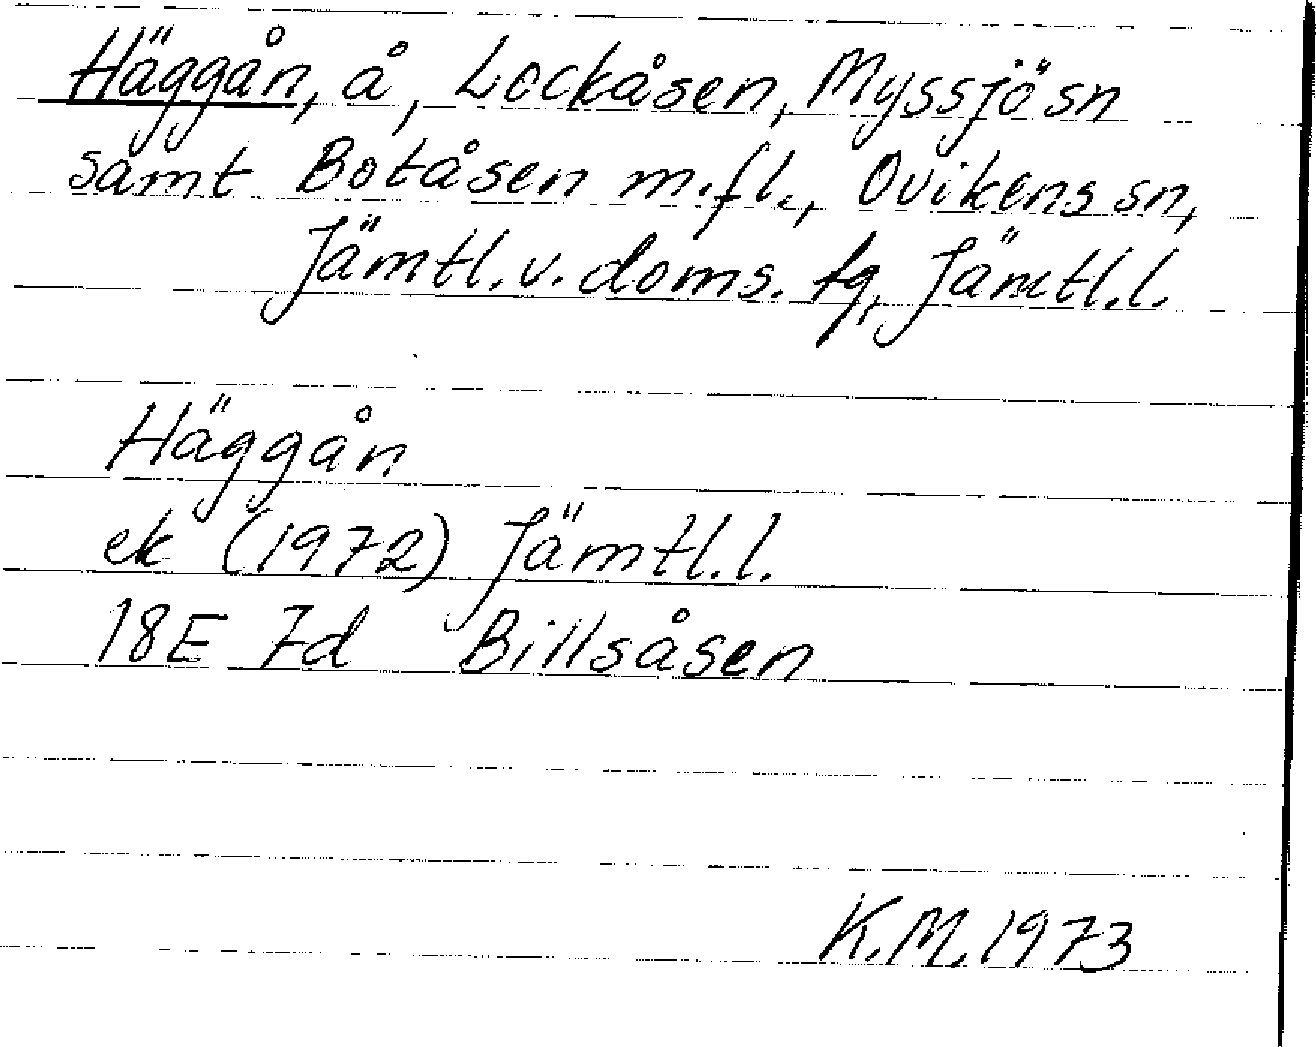 Häggån, å, Lockåsen, Myssjö sn
samt Botåsen m.fl., Ovikens sn,
Jämtl. v. doms. tg, Jämtl. l.
Häggån
ek (1972) Jämtl. l.
18E 7d Billsåsen
K.M. 1973